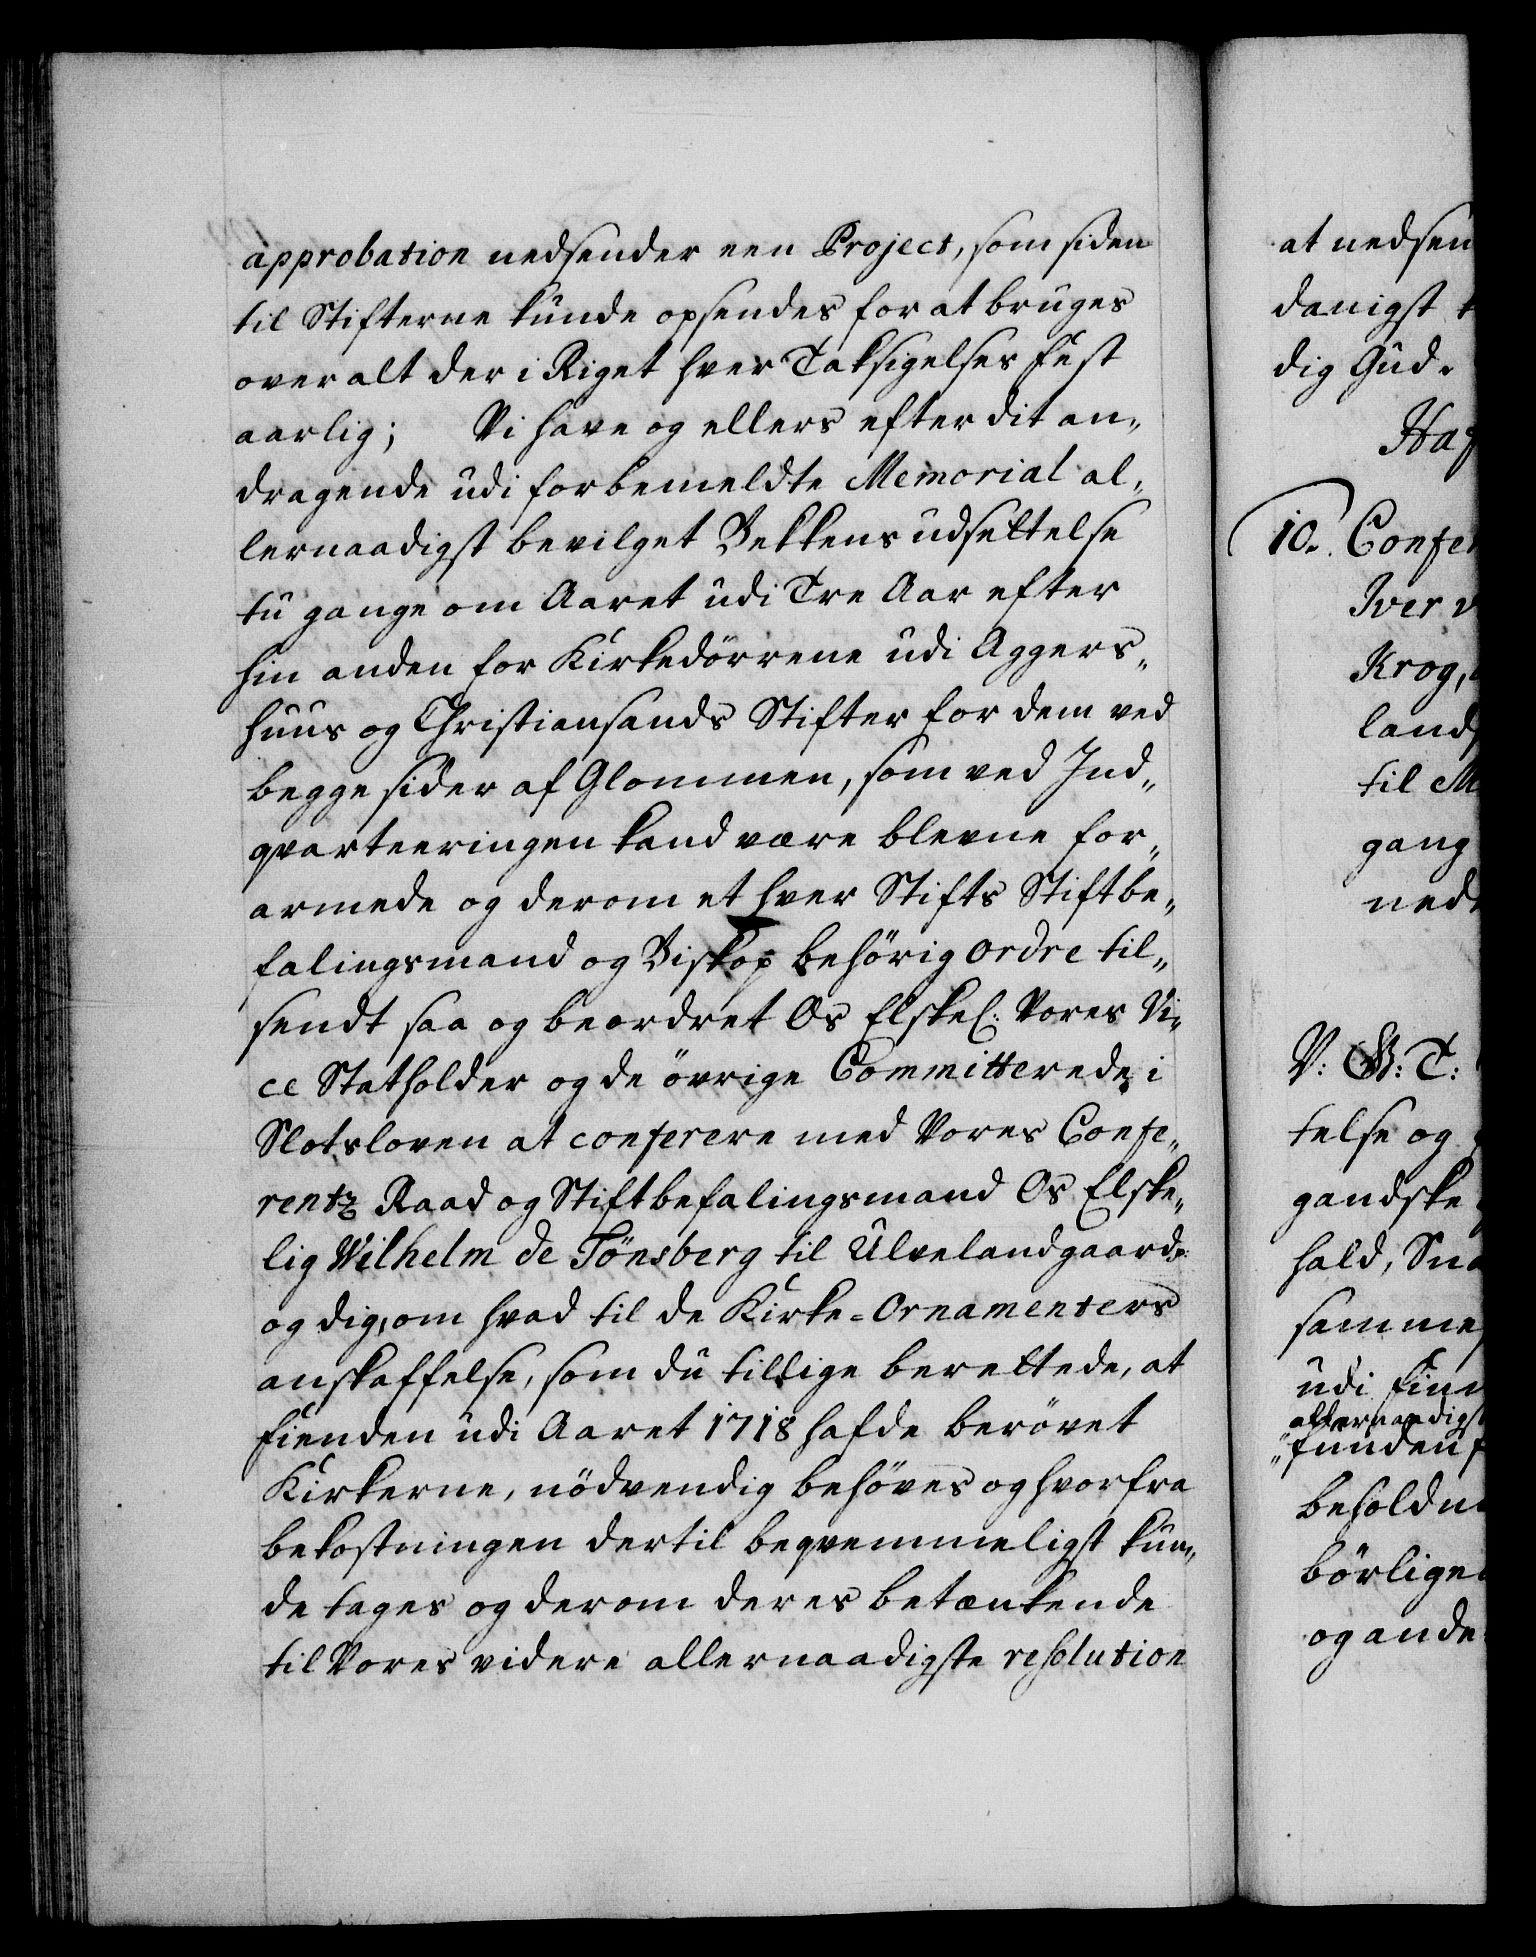 approbation nedsender een Project, som siden
til Stifterne kunde opsendes for at bruges
over alt der i Riget hver Taksigelses Fest
aarlig; Vi have og ellers efter dit an„
dragende udi forbemeldte Memorial al„
lernaadigst bevilget Bekkens udsettelse
tu gange om Aaret udi Tre Aar efter
hin anden for Kirkedörrene udi Aggers„
huus og Christiansands Stifter for dem ved
begge sider af Glommen, som ved Ind„
qvarteeringen kand være blevne for„
armede og derom et hver Stifts Stiftbe„
falingsmand og Biskop behörig ordre til„
sendt saa og beordret Os Elskel: Vores Vi„
ce Statholder og de övrige Committerede i
Slotsloven at conferere med Vores Confe„
rentz Raad og Stiftbefalingsmand Os Elske„
lig Wilhelm de Tönsberg til Ulvelandgaard:
og dig, om hvad til de Kirke-Ornamenters
anskaffelse, som du tillige berettede, at
Fienden udi Aaret 1718 hafde berövet
Kirkerne, nödvendig behöves og hvorfra
bekostningen dertil beqvemmeligst kun„
de tages og derom deres betænkende
til Vores videre allernaadigste resolution
at nedsen
danigst
dig Gud.
Haf
10. Confer
Iver
Krog,
lands
til M
gang
ned
V: G: T:
telse og
gandske
hald,
samme
udi Fin
allernaadigst
„funden
beholdn
börlige
og ande